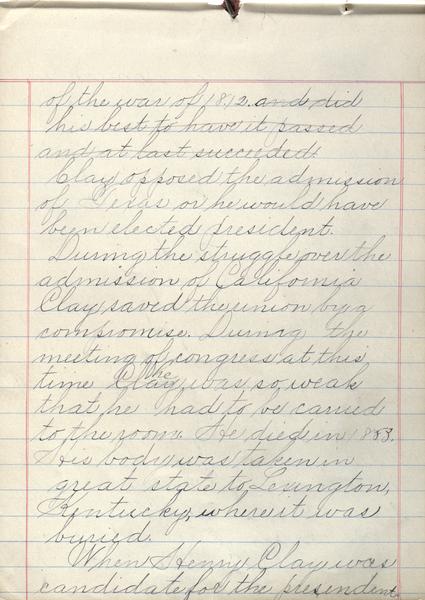 of the war of 1812. and did
his best to have it passed
and at last succeeded.
Clay opposed the admission
of Texas or he would have
been elected president.
During the struggle over the
admission of California
Clay saved the union by a
compromise. During the
meeting of congress at this
time Clay was so weak
that he had to be carried
to the room. He died in 1853.
His body was taken in
great state to Lexington,
Kentucky, where it was
buried.
When Henry Clay was
candidate for the president